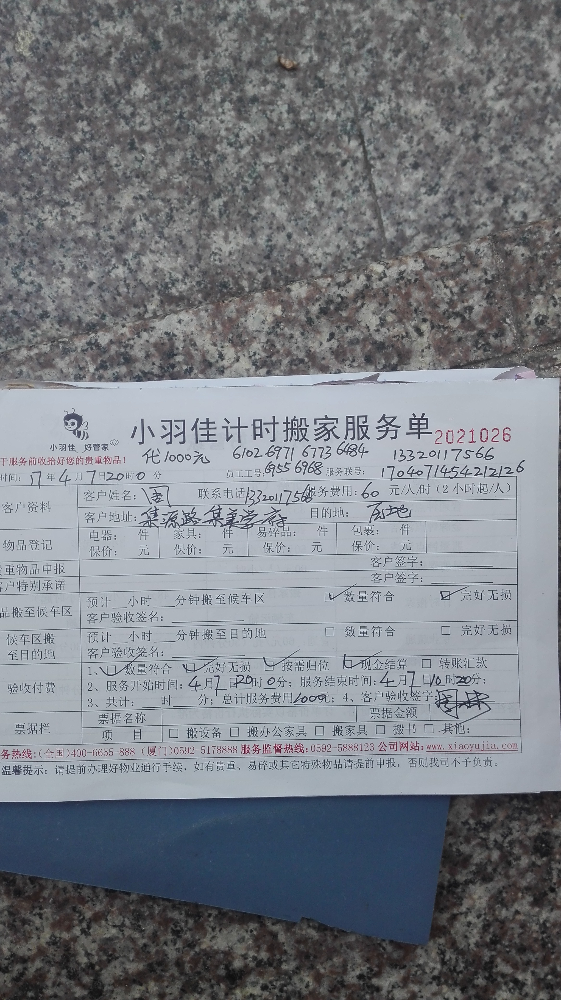 小羽佳 好管家
小羽佳计时搬家服务单 2021026
于服务前收拾好您的贵重物品! 代1000元 6102 6971 6773 6484 13320117566
时间: 17 年 4 月 7 日 20 时 0 分 员工工号: 6955 6968 服务联号: 17040714542121 26
客户资料 客户姓名: 联系电话 13320117566 服务费用: 60 元/人/时 (2小时起/人)
客户地址: 集源路 集美学府 目的地:
物品登记 电器: 件 家具: 件 易碎品: 件 包装: 件
保价: 元 保价: 元 保价: 元 保价: 元
贵重物品申报 客户签字:
客户特别承诺 客户签字:
品搬至候车区 预计__小时__分钟搬至候车区 数量符合 完好无损
客户验收签名:
候车区搬至目的地 预计__小时__分钟搬至目的地 □ 数量符合 □ 完好无损
客户验收签名:
验收付费 1、数量符合 完好无损 按需归位 现金结算 □ 转账汇款
2、服务开始时间: 4 月 7 日 20 时 0 分; 服务结束时间: 4 月 7 日
3、共计: 时 分; 总计服务费用 4、客户验收签字:
票据栏 票据名称 票据金额
项 目 □ 搬设备 □ 搬办公家具 □ 搬家具 □ 搬书 □ 其他:
务热线:(全国)400-6655-888 (厦门)0592-5178888 服务监督热线:0592-5888123 公司网站:www.xiaoyujia.com
温馨提示: 请提前办理好物业通行手续, 如有贵重、易碎或其它特殊物品请提前申报, 否则我司不予负责。